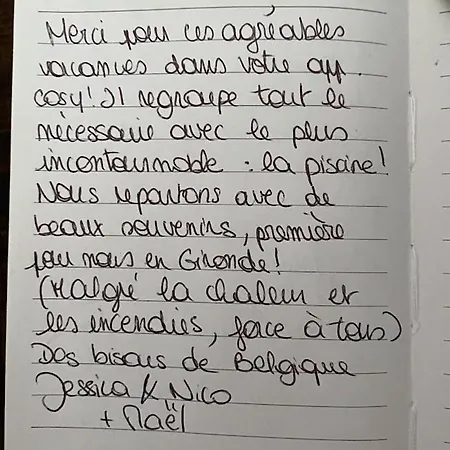 Merci pour ces agréables
vacances dans votre app.
cosy! Il regroupe tout le
nécessaire avec le plus
incontournable : la piscine!
Nous repartons avec de
beaux souvenirs, première
pour nous en Gironde!
(Malgré la chaleur et
les incendies, face à tous)
Des bisous de Belgique
Jessica & Nico
+ Naël